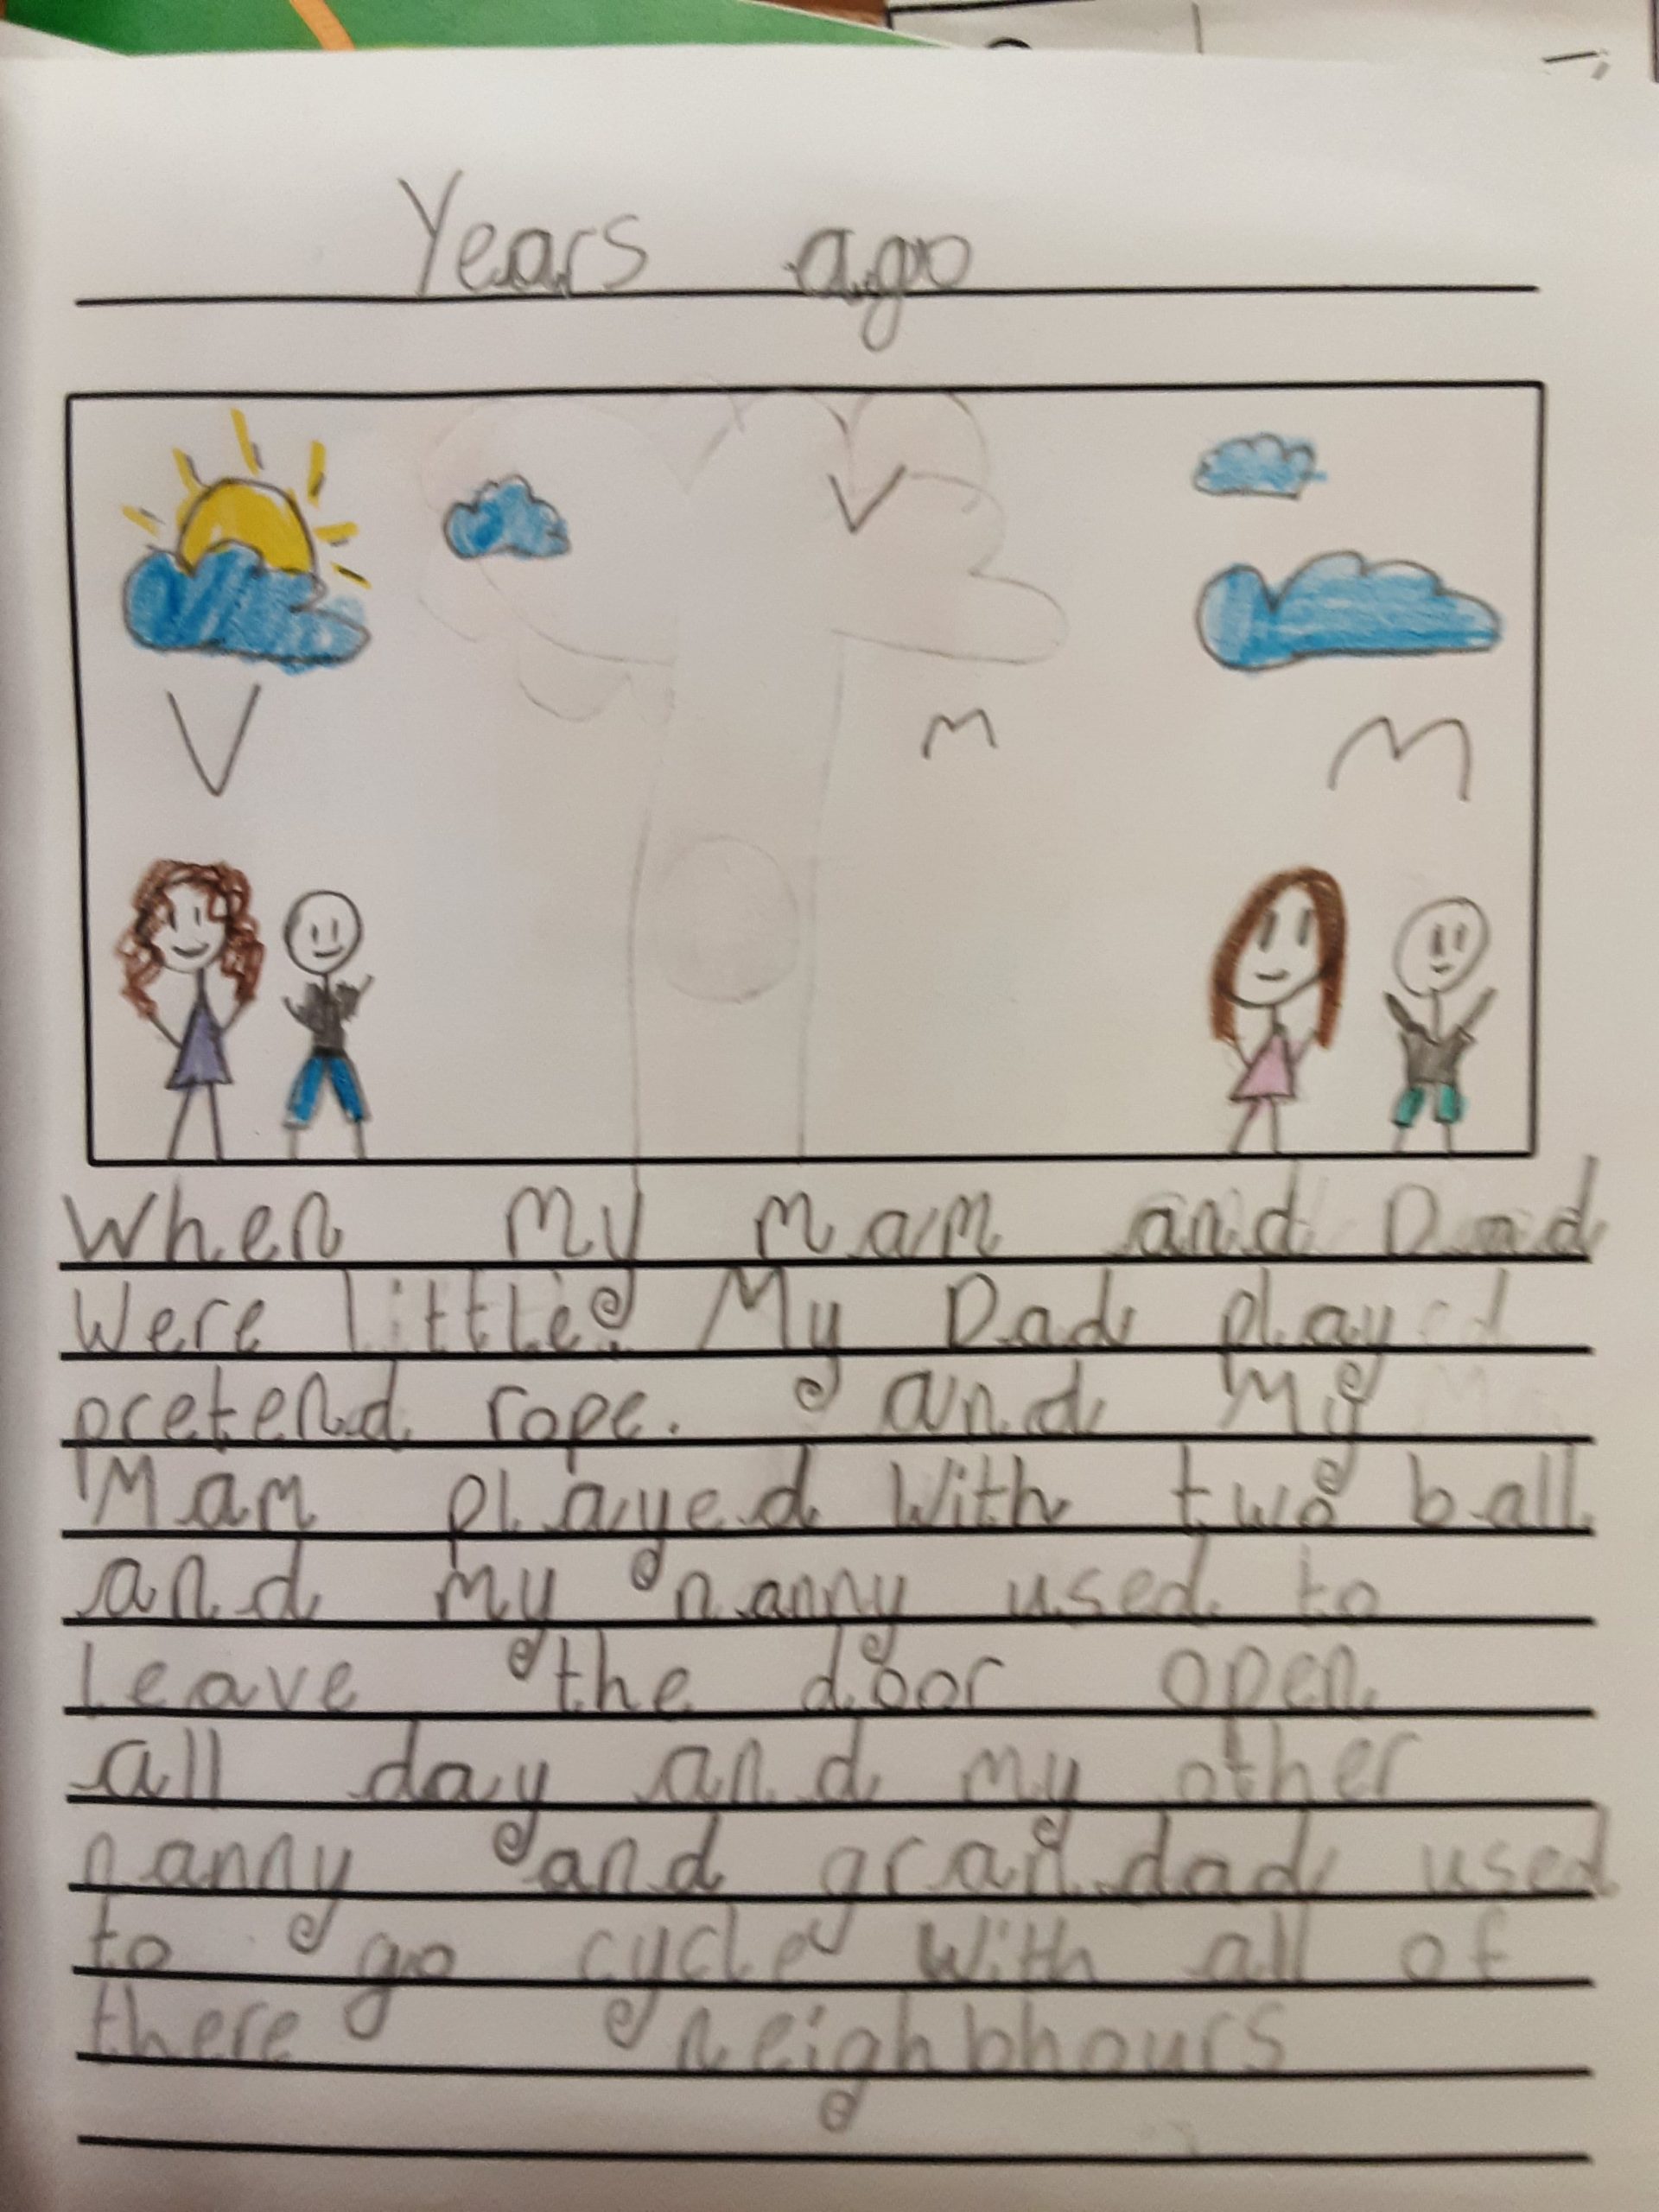 Years ago
When my mam and Dad
Were little My Dad played
pretend rope. and My
Mam played With two ball
and my nanny used to
leave the door open
all day and my other
nanny and grandad used
to go cycle With all of
there neighbhours